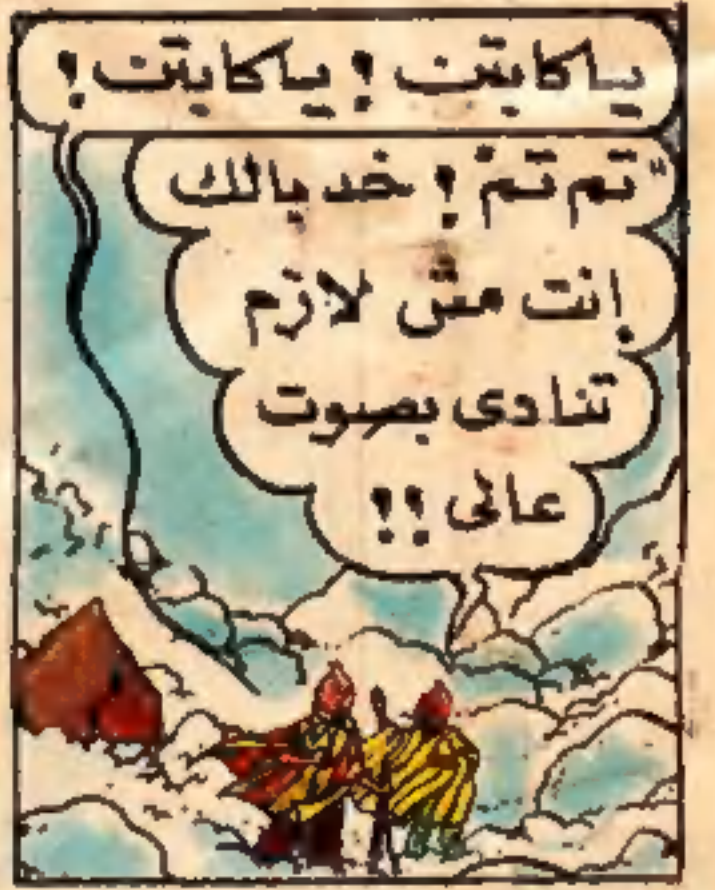 ياكابتن ! ياكابتن !
"تم تم" ! خد بالك
إنت مش لازم
تنادى بصوت
عالى !!